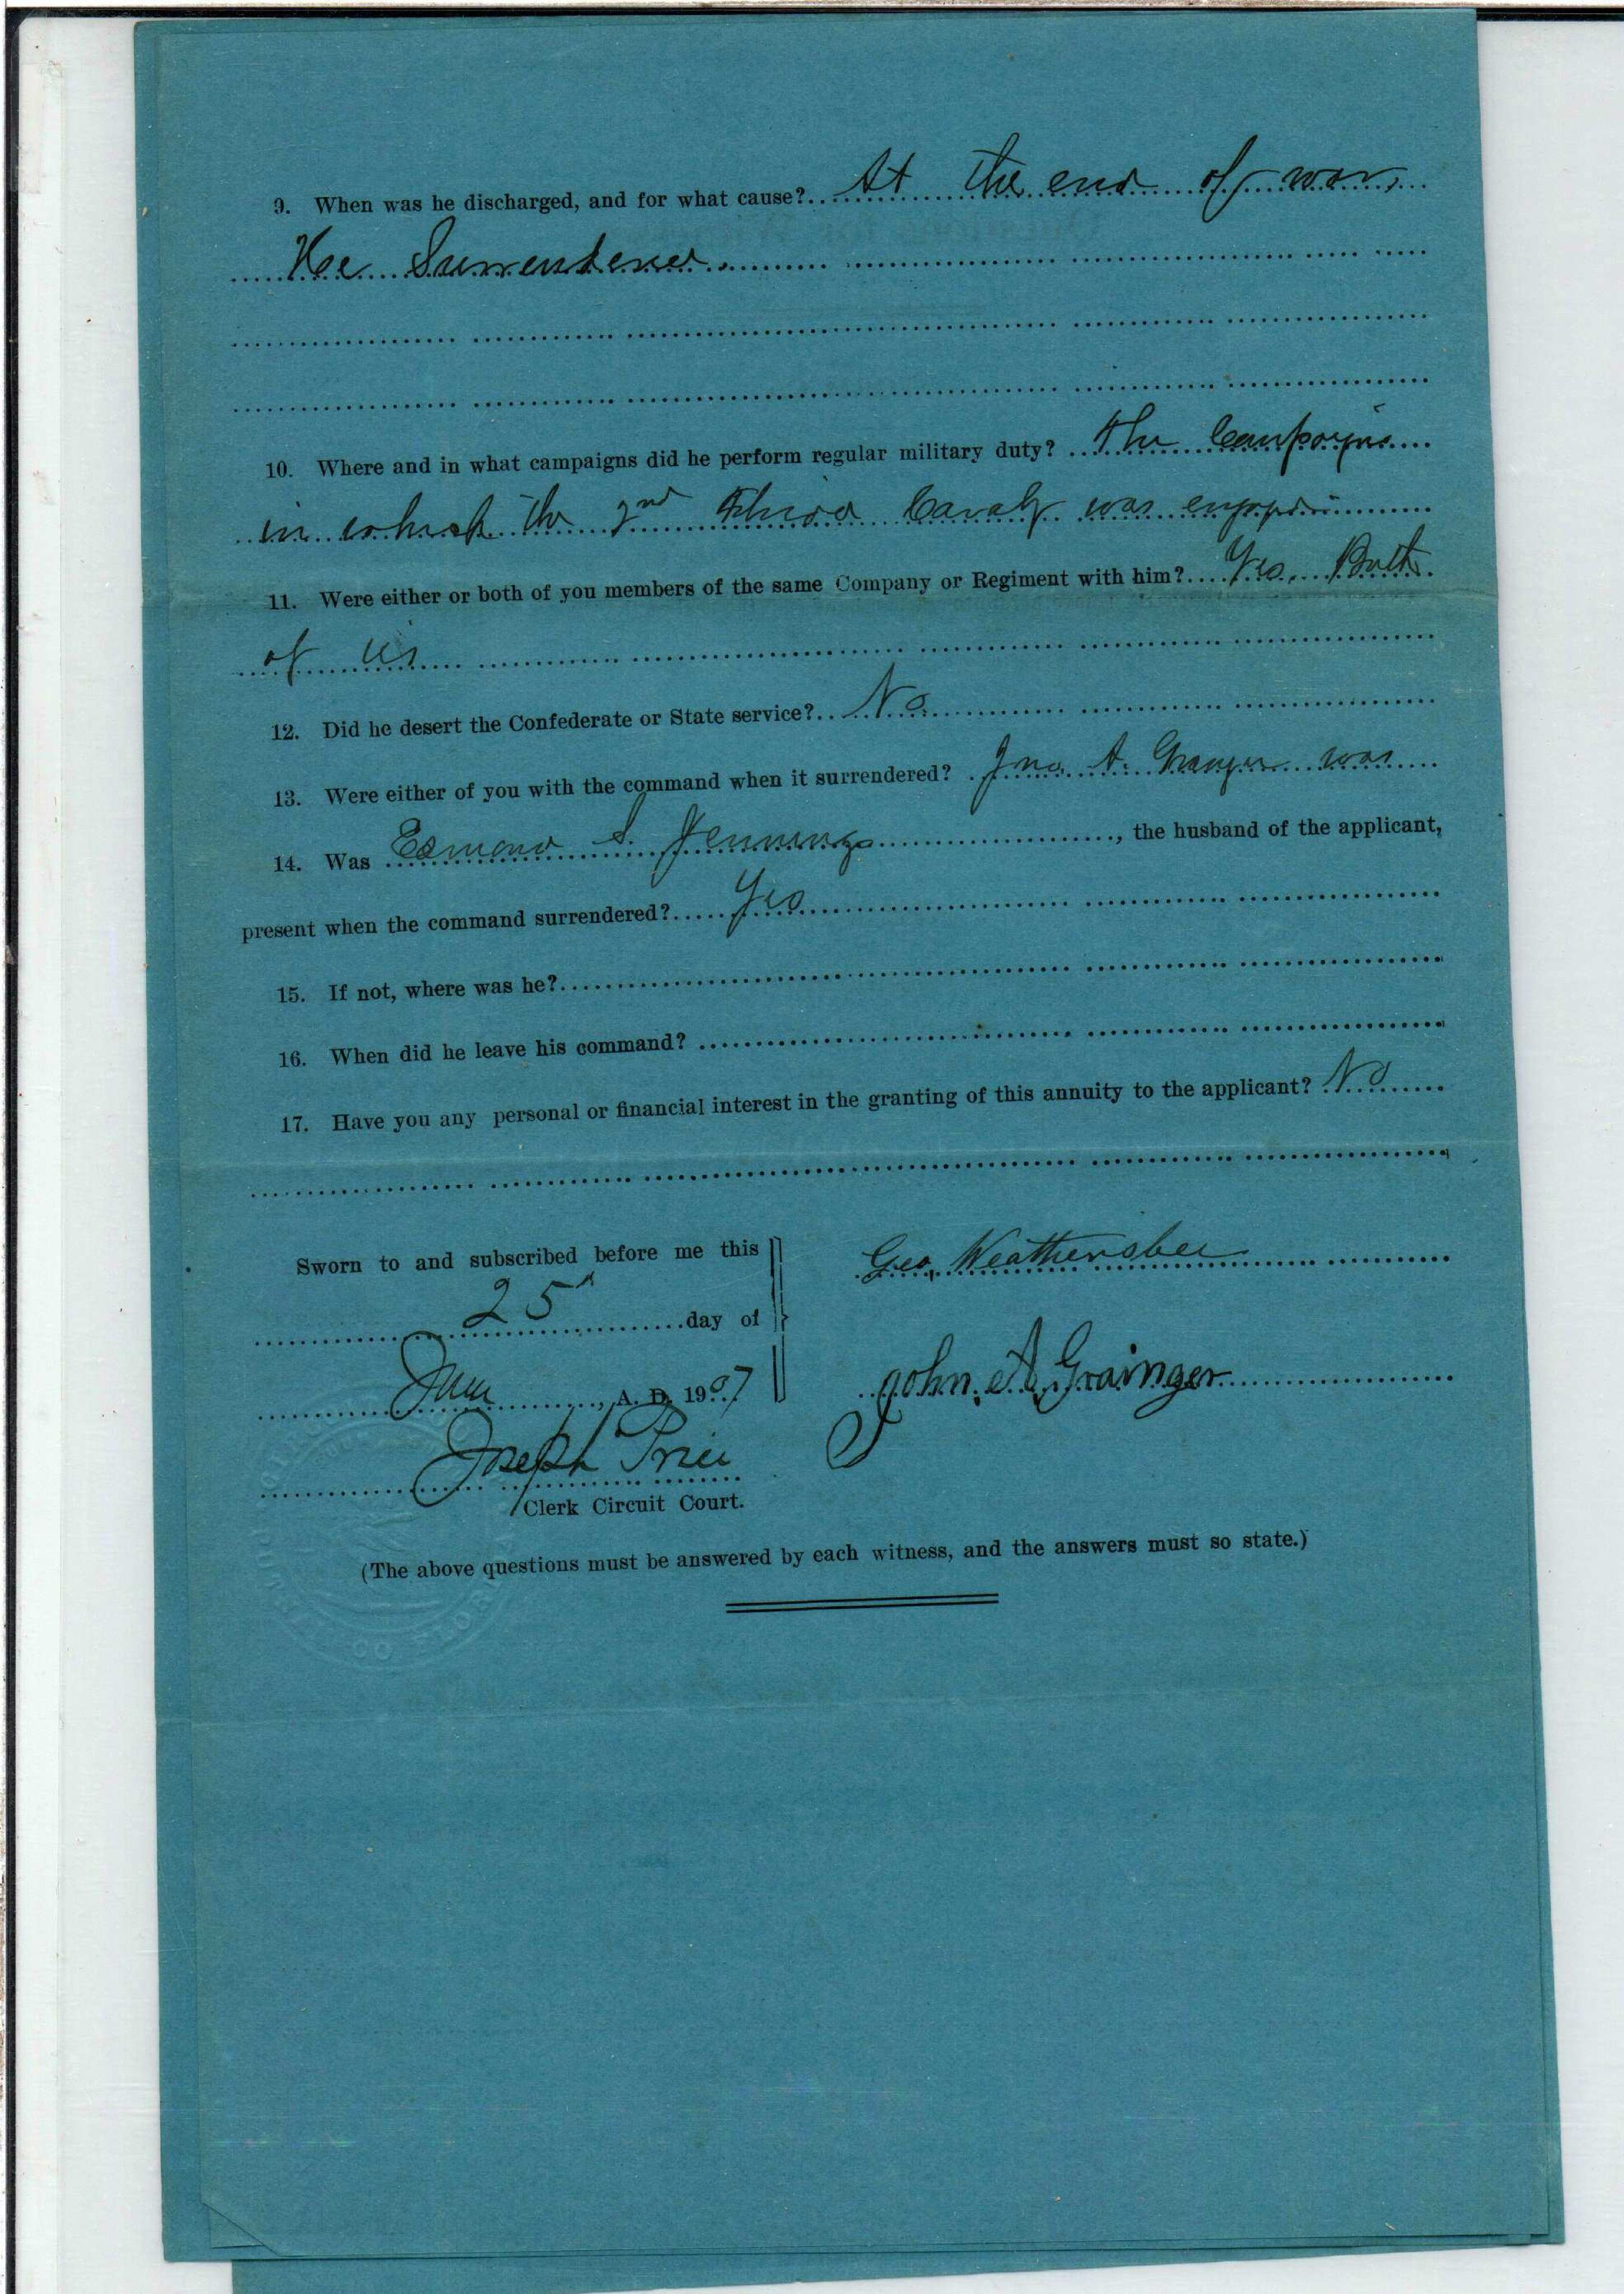 9. When was he discharged, and for what cause? At the end of war,
He Surrendered.
10. Where and in what campaigns did he perform regular military duty? The Campaigns
in which the 2nd Florida Cavalry was engaged
11. Were either or both of you members of the same Company or Regiment with him? Yes, Both
of us
12. Did he desert the Confederate or State service? No
13. Were either of you with the command when it surrendered? Jno. A. Granger was
14. Was Edmond S. Jennings, the husband of the applicant,
present when the command surrendered? Yes
15. If not, where was he?
16. When did he leave his command?
17. Have you any personal or financial interest in the granting of this annuity to the applicant? No
Sworn to and subscribed before me this
25 day of
June, A. D. 1907
Joseph Price
Clerk Circuit Court.
Geo, Weathersbee
John. A. Grainger
(The above questions must be answered by each witness, and the answers must so state.)
CO FLORIDA